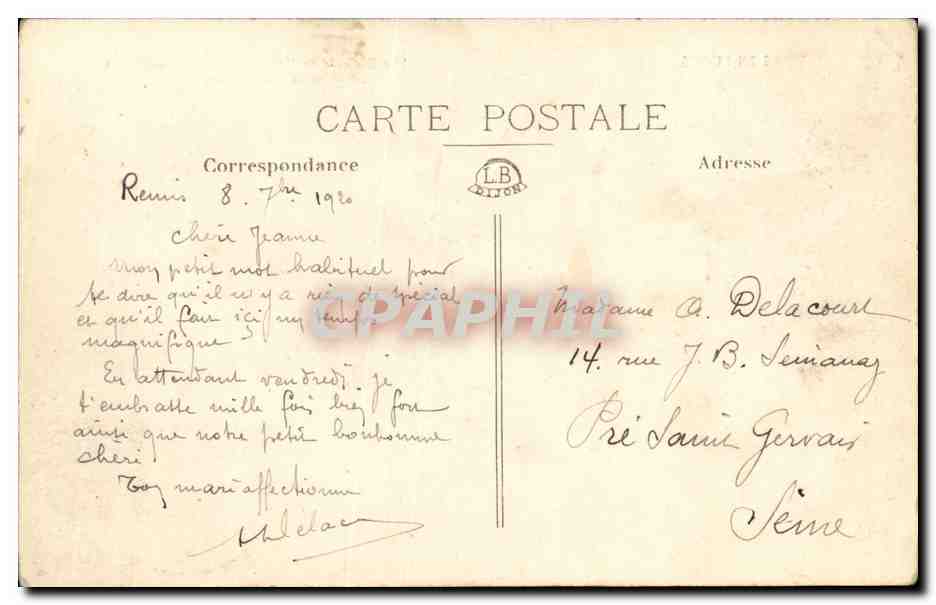 CARTE POSTALE
Correspondance
Adresse
L.B
DIJON
Reims 8. 7bre 1920
Chère Jeanne
mon petit mot habituel pour
te dire qu'il n'y a rien de spécial
et qu'il fait ici un temps
magnifique
En attendant vendredi je
t'embrasse mille fois bien fort
ainsi que notre petit bonhomme
chéri.
Ton mari affectionné
Madame A. Delacourt
14. rue J. B. Semanaz
Pré Saint Gervais
Seine
CPAPHIL